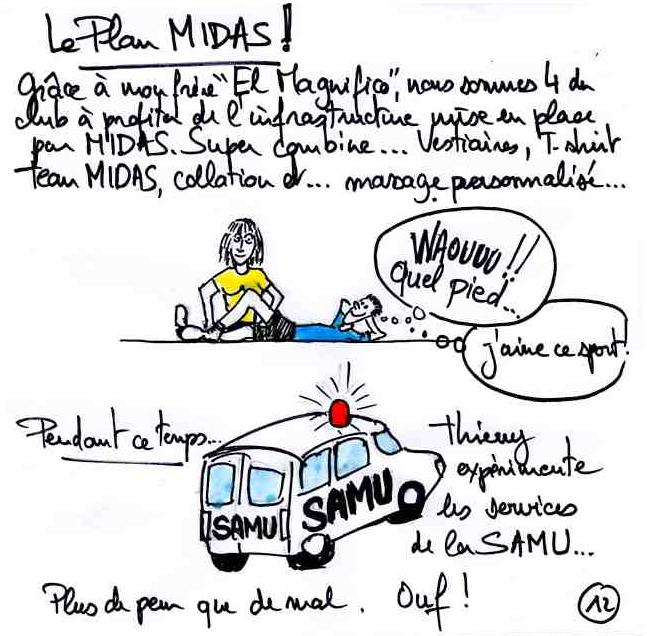 Le Plan MIDAS !
Grâce à mon frère "El Magnifico", nous sommes 4 du
club à profiter de l'infrastructure mise en place
par MIDAS. Super combine... Vestiaires, T-shirt
team MIDAS, collation et... massage personnalisé...
WAOUUU !!
Quel pied...
j'aime ce sport !
Pendant ce temps...
Thierry
expérimente
les services
de la SAMU...
SAMU
SAMU
Plus de peur que de mal. Ouf !
12